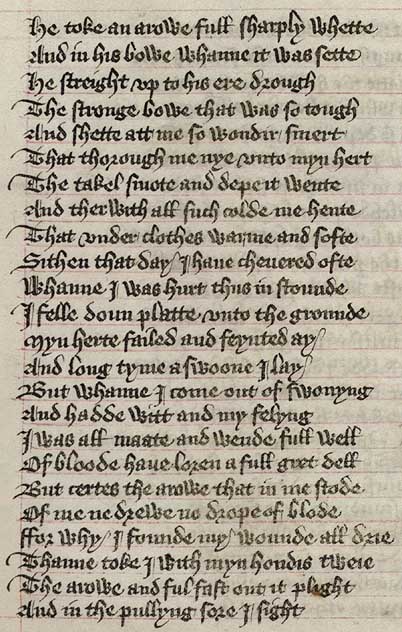 He toke an arowe full sharply whette
And in his bowe whanne it was sette
He streight vp to his ere drough
The stronge bowe that was so tough
And shette att me so wondir smert
That thorough me nye vnto myn hert
The takel smote and depe it wente
And ther with all such colde me hente
That vnder clothes warme and softe
Sithen that day / I haue cheuered ofte
Whanne I was hurt thus in stounde
I felle doun platte vnto the grounde
Myn herte failed and feynted ay /
And long tyme a swoone I lay /
But whanne I come out of swonyng
And hadde witt and my felyng
I was all maate and wende full well
Of bloode haue loren a full gret dell
But certes the arowe that in me stode
Of me ne drewe no drope of blode
ffor why / I founde my / wounde all drie
Thanne toke I with myn hondis tweie
The arowe and ful fast out it plight
And in the pullyng sore I sight